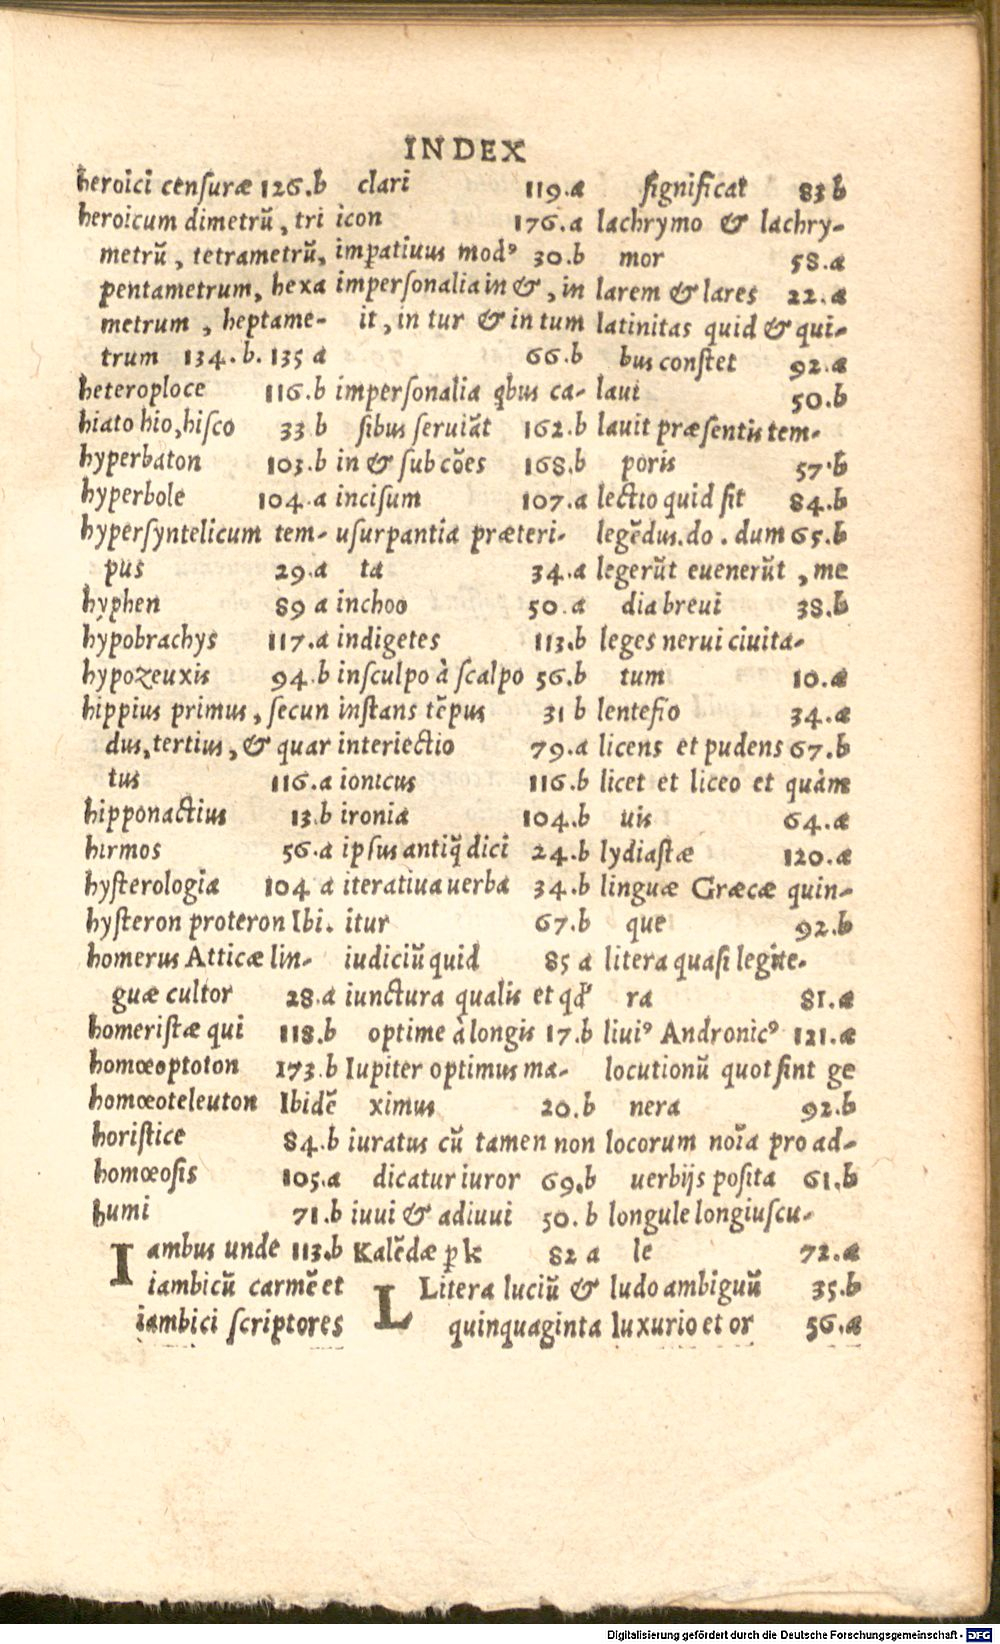 INDEX
heroici censuræ 126.b
heroicum dimetrũ, tri
metrũ, tetrametrũ,
pentametrum, hexa
metrum, heptame-
trum 134.b. 135 a
heteroploce 116.b
hiato hio, hisco 33 b
hyperbaton 103.b
hyperbole 104.a
hypersyntelicum tem-
pus 29.a
hyphen 89 a
hypobrachys 117.a
hypozeuxis 94.b
hippius primus, secun
dus, tertius, & quar
tus 116.a
hipponactius 13.b
hirmos 56.a
hysterologia 104 a
hysteron proteron Ibi.
homerus Atticæ lin-
guæ cultor 28.a
homeristæ qui 118.b
homœoptoton 173.b
homœoteleuton Ibidẽ
horistice 84.b
homœosis 105.a
humi 71.b
Iambus unde 113.b
iambicũ carmẽ et
iambici scriptores
clari 119.a
icon 176.a
impatiuus modꝰ 30.b
impersonalia in &, in
it, in tur & in tum
66.b
impersonalia qbus ca-
sibus seruiãt 162.b
in & sub cões 168.b
incisum 107.a
usurpantia præteri-
ta 34.a
inchoo 50.a
indigetes 113.b
insculpo à scalpo 56.b
instans tẽpus 31 b
interiectio 79.a
ionicus 116.b
ironia 104.b
ipsus antiq̃ dici 24.b
iteratiua uerba 34.b
itur 67.b
iudiciũ quid 85 a
iunctura qualis et
optime à longis 17.b
Iupiter optimus ma-
ximus 20.b
iuratus cũ tamen non
dicatur iuror 69.b
iuui & adiuui 50.b
Kalẽdæ ꝑ k 82 a
LLitera luciũ &
quinquaginta
significat 83 b
lachrymo & lachry-
mor 58.a
larem & lares 22.a
latinitas quid & qui-
bus constet 92.a
laui 50.b
lauit præsentis tem-
poris 57.b
lectio quid sit 84.b
legẽdus.do.dum 65.b
legerũt euenerũt, me
dia breui 38.b
leges nerui ciuita-
tum 10.a
lentefio 34.a
licens et pudens 67.b
licet et liceo et quàm
uis 64.a
lydiastæ 120.a
linguæ Græcæ quin-
que 92.b
litera quasi legite-
ra 81.a
liuiꝰ Andronicꝰ 121.a
locutionũ quot sint ge
nera 92.b
locorum noĩa pro ad-
uerbijs posita 61.b
longule longiuscu-
le 72.a
ludo ambiguũ 35.b
luxurio et or 56.a
Digitalisierung gefördert durch die Deutsche Forschungsgemeinschaft - DFG